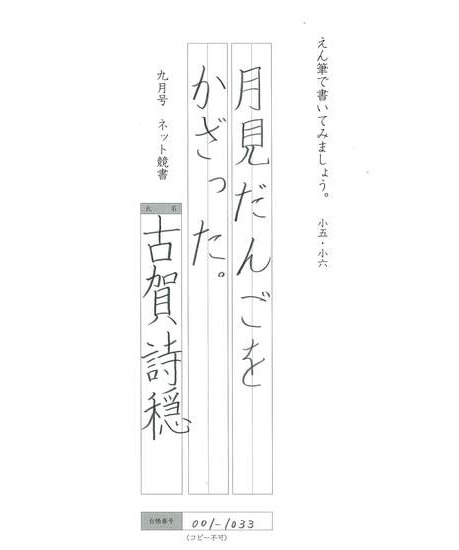 えん筆で書いてみましょう。 小五・小六
月見だんごを
かざった。
九月号 ネット競書
氏名
古賀詩穏
台帳番号 001-1033
(コピー不可)